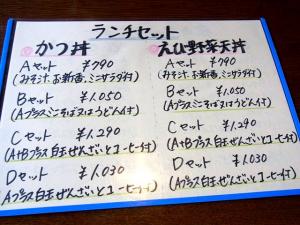 ランチセット
かつ丼
Aセット ¥790
(みそ汁、お新香、ミニサラダ付)
Bセット ¥1,050
(Aプラスミニそば又はうどん付)
Cセット ¥1,290
(A+Bプラス白玉ぜんざいとコーヒー付)
Dセット ¥1,030
(Aプラス白玉ぜんざいとコーヒー付)
えび野菜天丼
Aセット ¥790
(みそ汁、お新香、ミニサラダ付)
Bセット ¥1,050
(Aプラスミニそば又はうどん付)
Cセット ¥1,290
(A+Bプラス白玉ぜんざいとコーヒー付)
Dセット ¥1,030
(Aプラス白玉ぜんざいとコーヒー付)